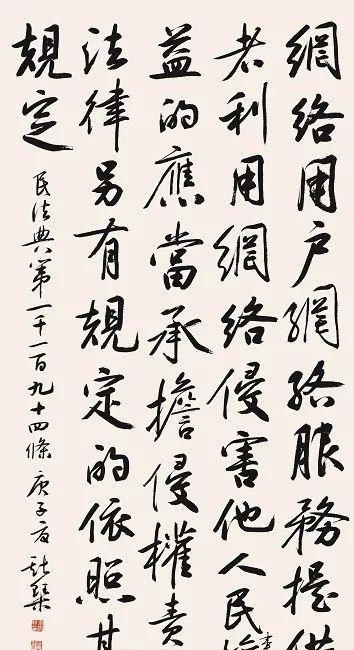 網絡用户網絡服務提供
者利用網絡侵害他人民事
益的應當承擔侵權責
法律另有規定的依照其
規定
民法典第一千一百九十四條 庚子夏